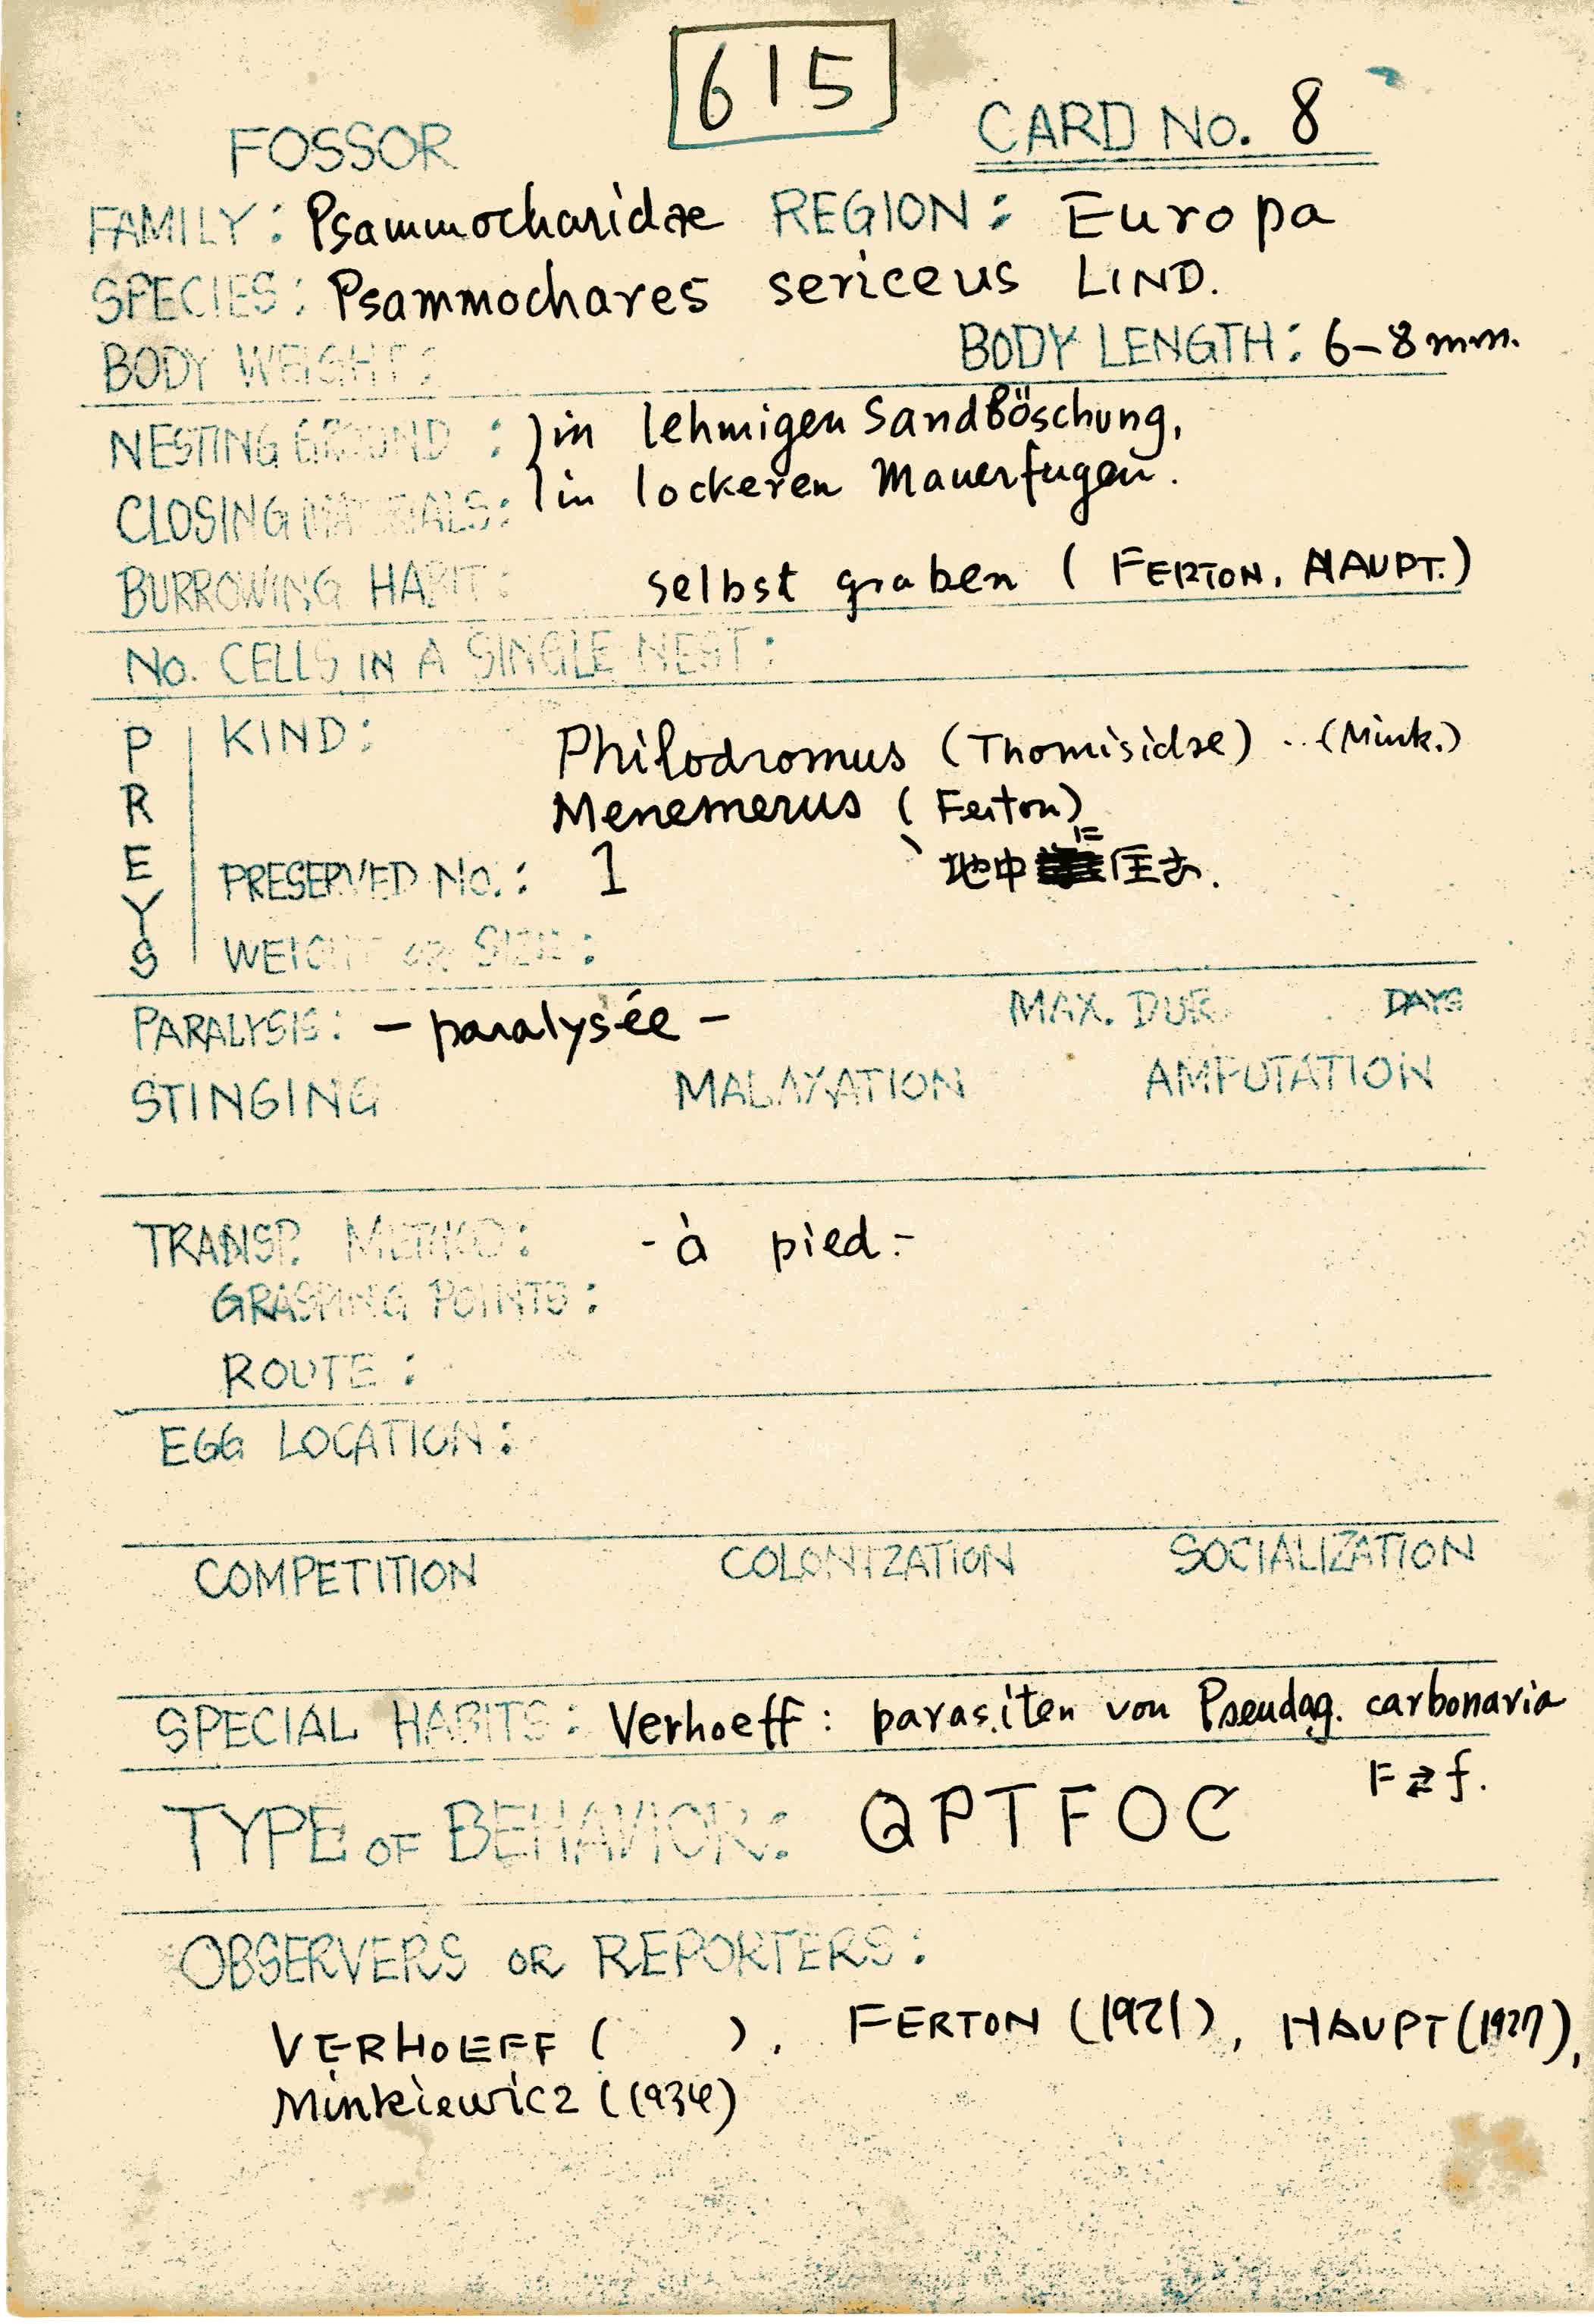 615
FOSSOR CARD No. 8
FAMILY: Psammocharidae REGION: Europa
SPECIES: Psammochares sericeus LIND.
BODY WEIGHT: BODY LENGTH: 6-8mm.
NESTING GROUND: in lehmigen Sandböschung,
CLOSING MATERIALS: in lockeren Mauerfugen.
BURROWING HABIT: selbst graben (FERTON, HAUPT.)
No. CELLS IN A SINGLE NEST:
PREYS
KIND: Philodromus (Thomisidae) .. (Mink.)
Menemerus (Ferton)
PRESERVED No.: 1 地中に住む.
WEIGHT OR SIZE:
PARALYSIS: - paralysée - MAX. DUR. DAYS
STINGING MALAXATION AMPUTATION
TRANSP. METHOD: - à pied -
GRASPING POINTS:
ROUTE:
EGG LOCATION:
COMPETITION COLONIZATION SOCIALIZATION
SPECIAL HABITS: Verhoeff: parasiten von Pseudag. carbonaria
F⇄f.
TYPE OF BEHAVIOR: QPTFOC
OBSERVERS OR REPORTERS:
VERHOEFF ( ), FERTON (1921), HAUPT (1927),
Minkiewicz (1934)